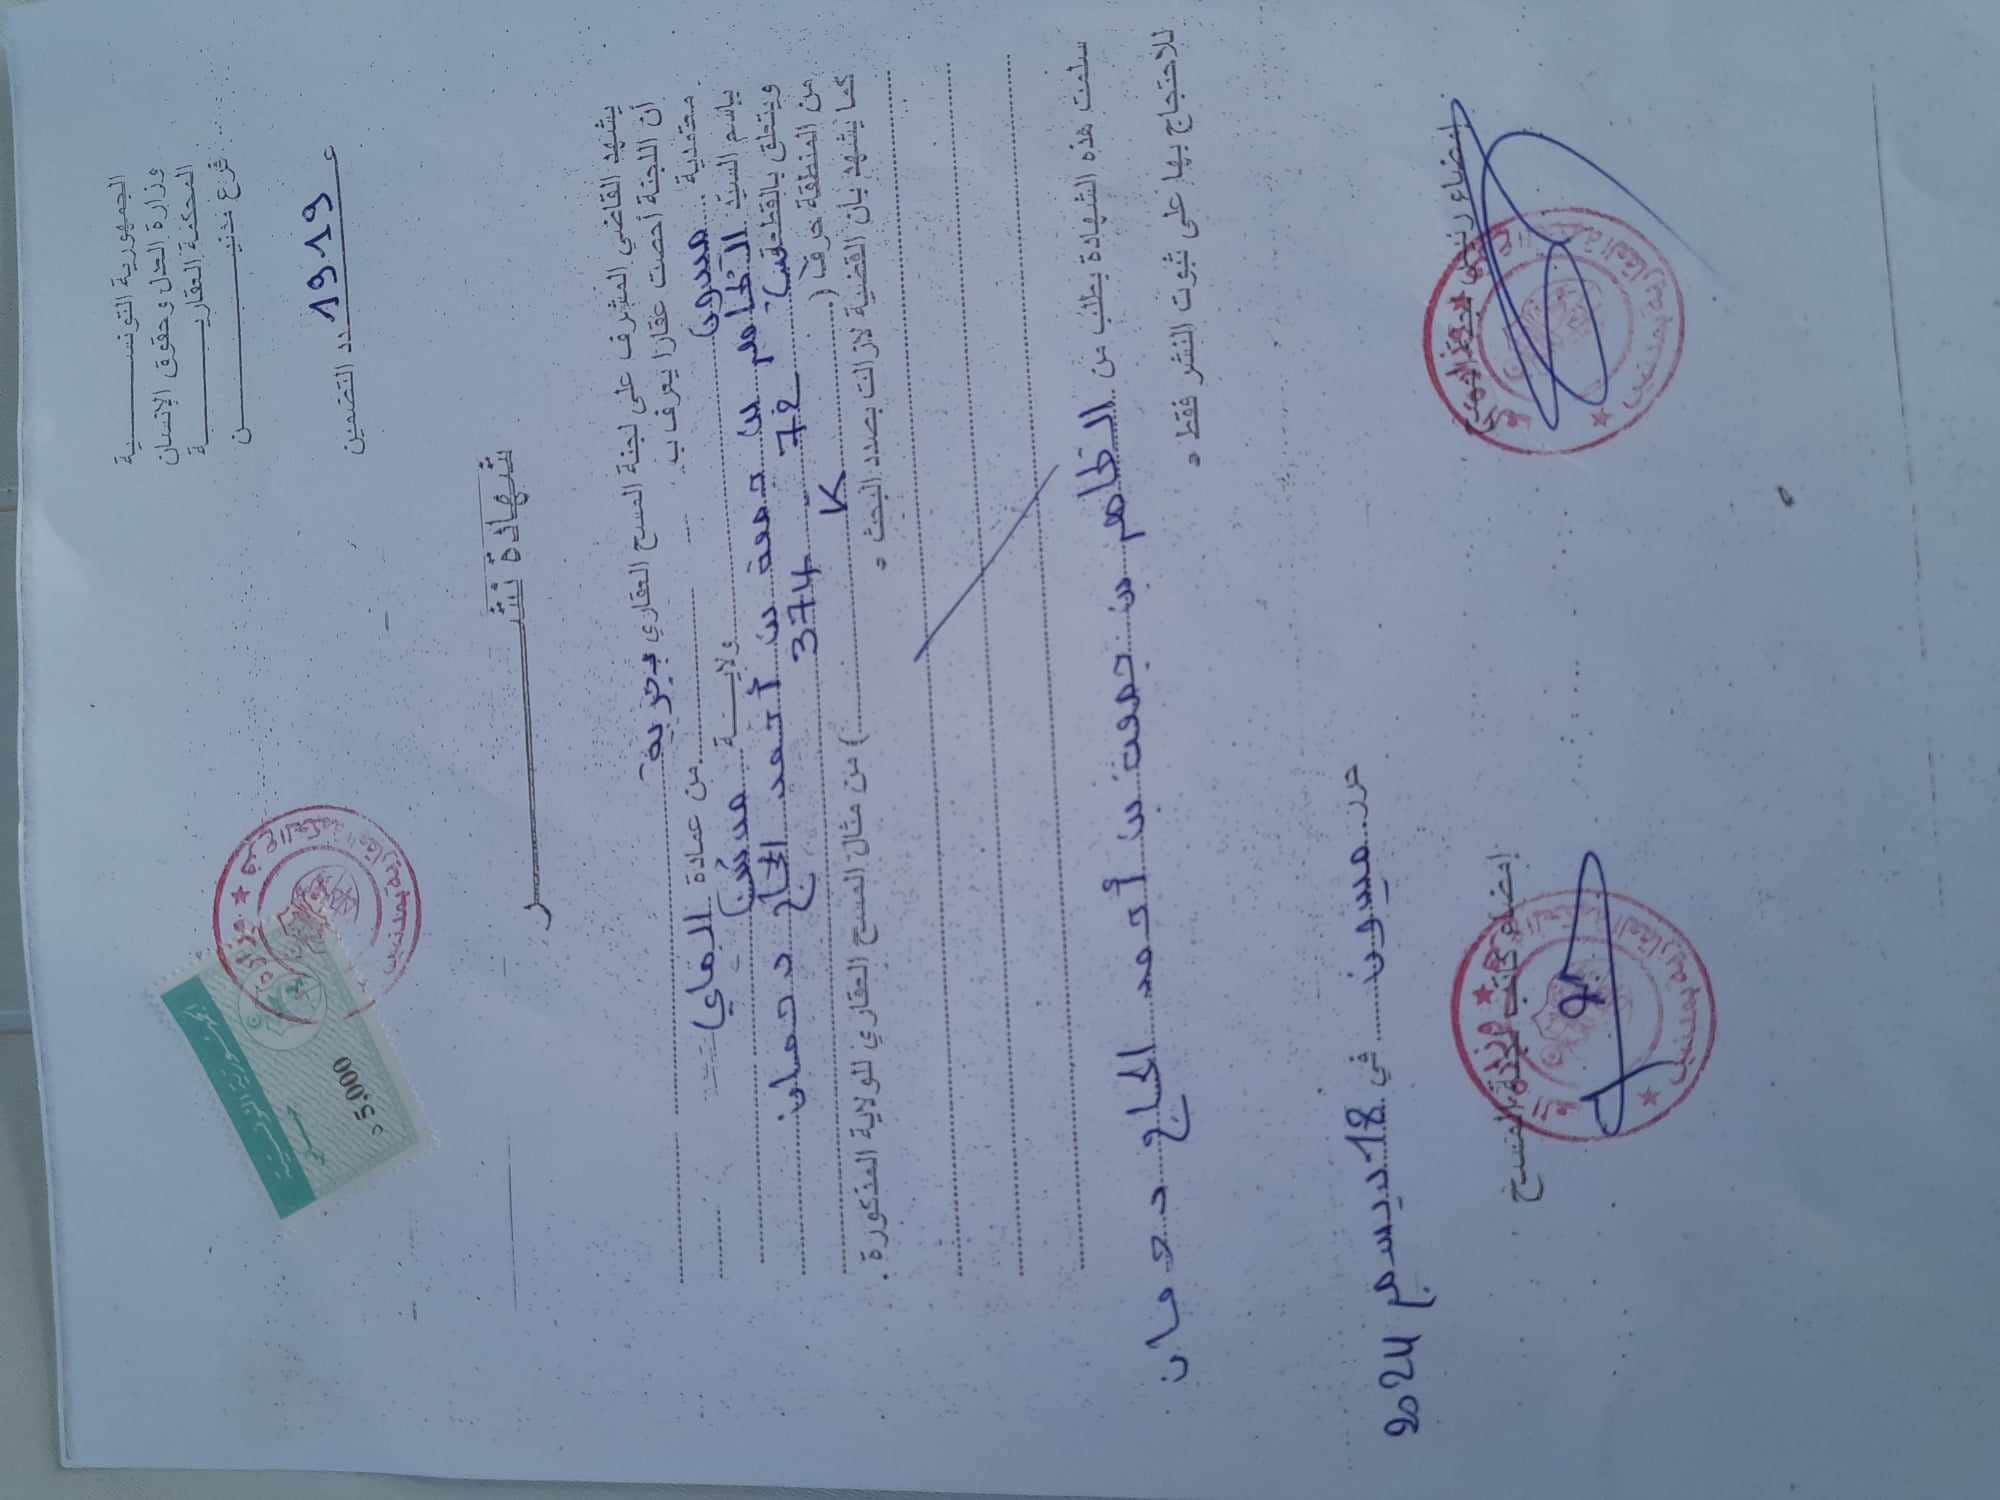 الجمهورية التونسية
وزارة العدل وحقوق الإنسان
المحكمة العقارية
فرع مدنين
عدد التضمين 1919
الجمهورية التونسية
5,000
شهادة نشر
يشهد القاضي المشرف على لجنة المسح العقاري بجربة
أن اللجنة أحصت عقارا يعرف ب
معتمدية ميدون من عمادة الماي
ولاية مدنين
باسم السيد الطاهر بن جمعة بن أحمد الحاج دحمان
ويتعلق بالقطعتين 72 374
من المنطقة حرف ( K ) من مثال المسح العقاري للولاية المذكورة .
كما يشهد بأن القضية لازالت بصدد البحث .
سلمت هذه الشهادة بطلب من الطاهر بن جمعة بن أحمد الحاج دحمان
للاحتجاج بها على ثبوت النشر فقط .
حرر ميدون في 18 ديسمبر 2024
إمضاء كاتب لجنة المسح
إمضاء رئيس